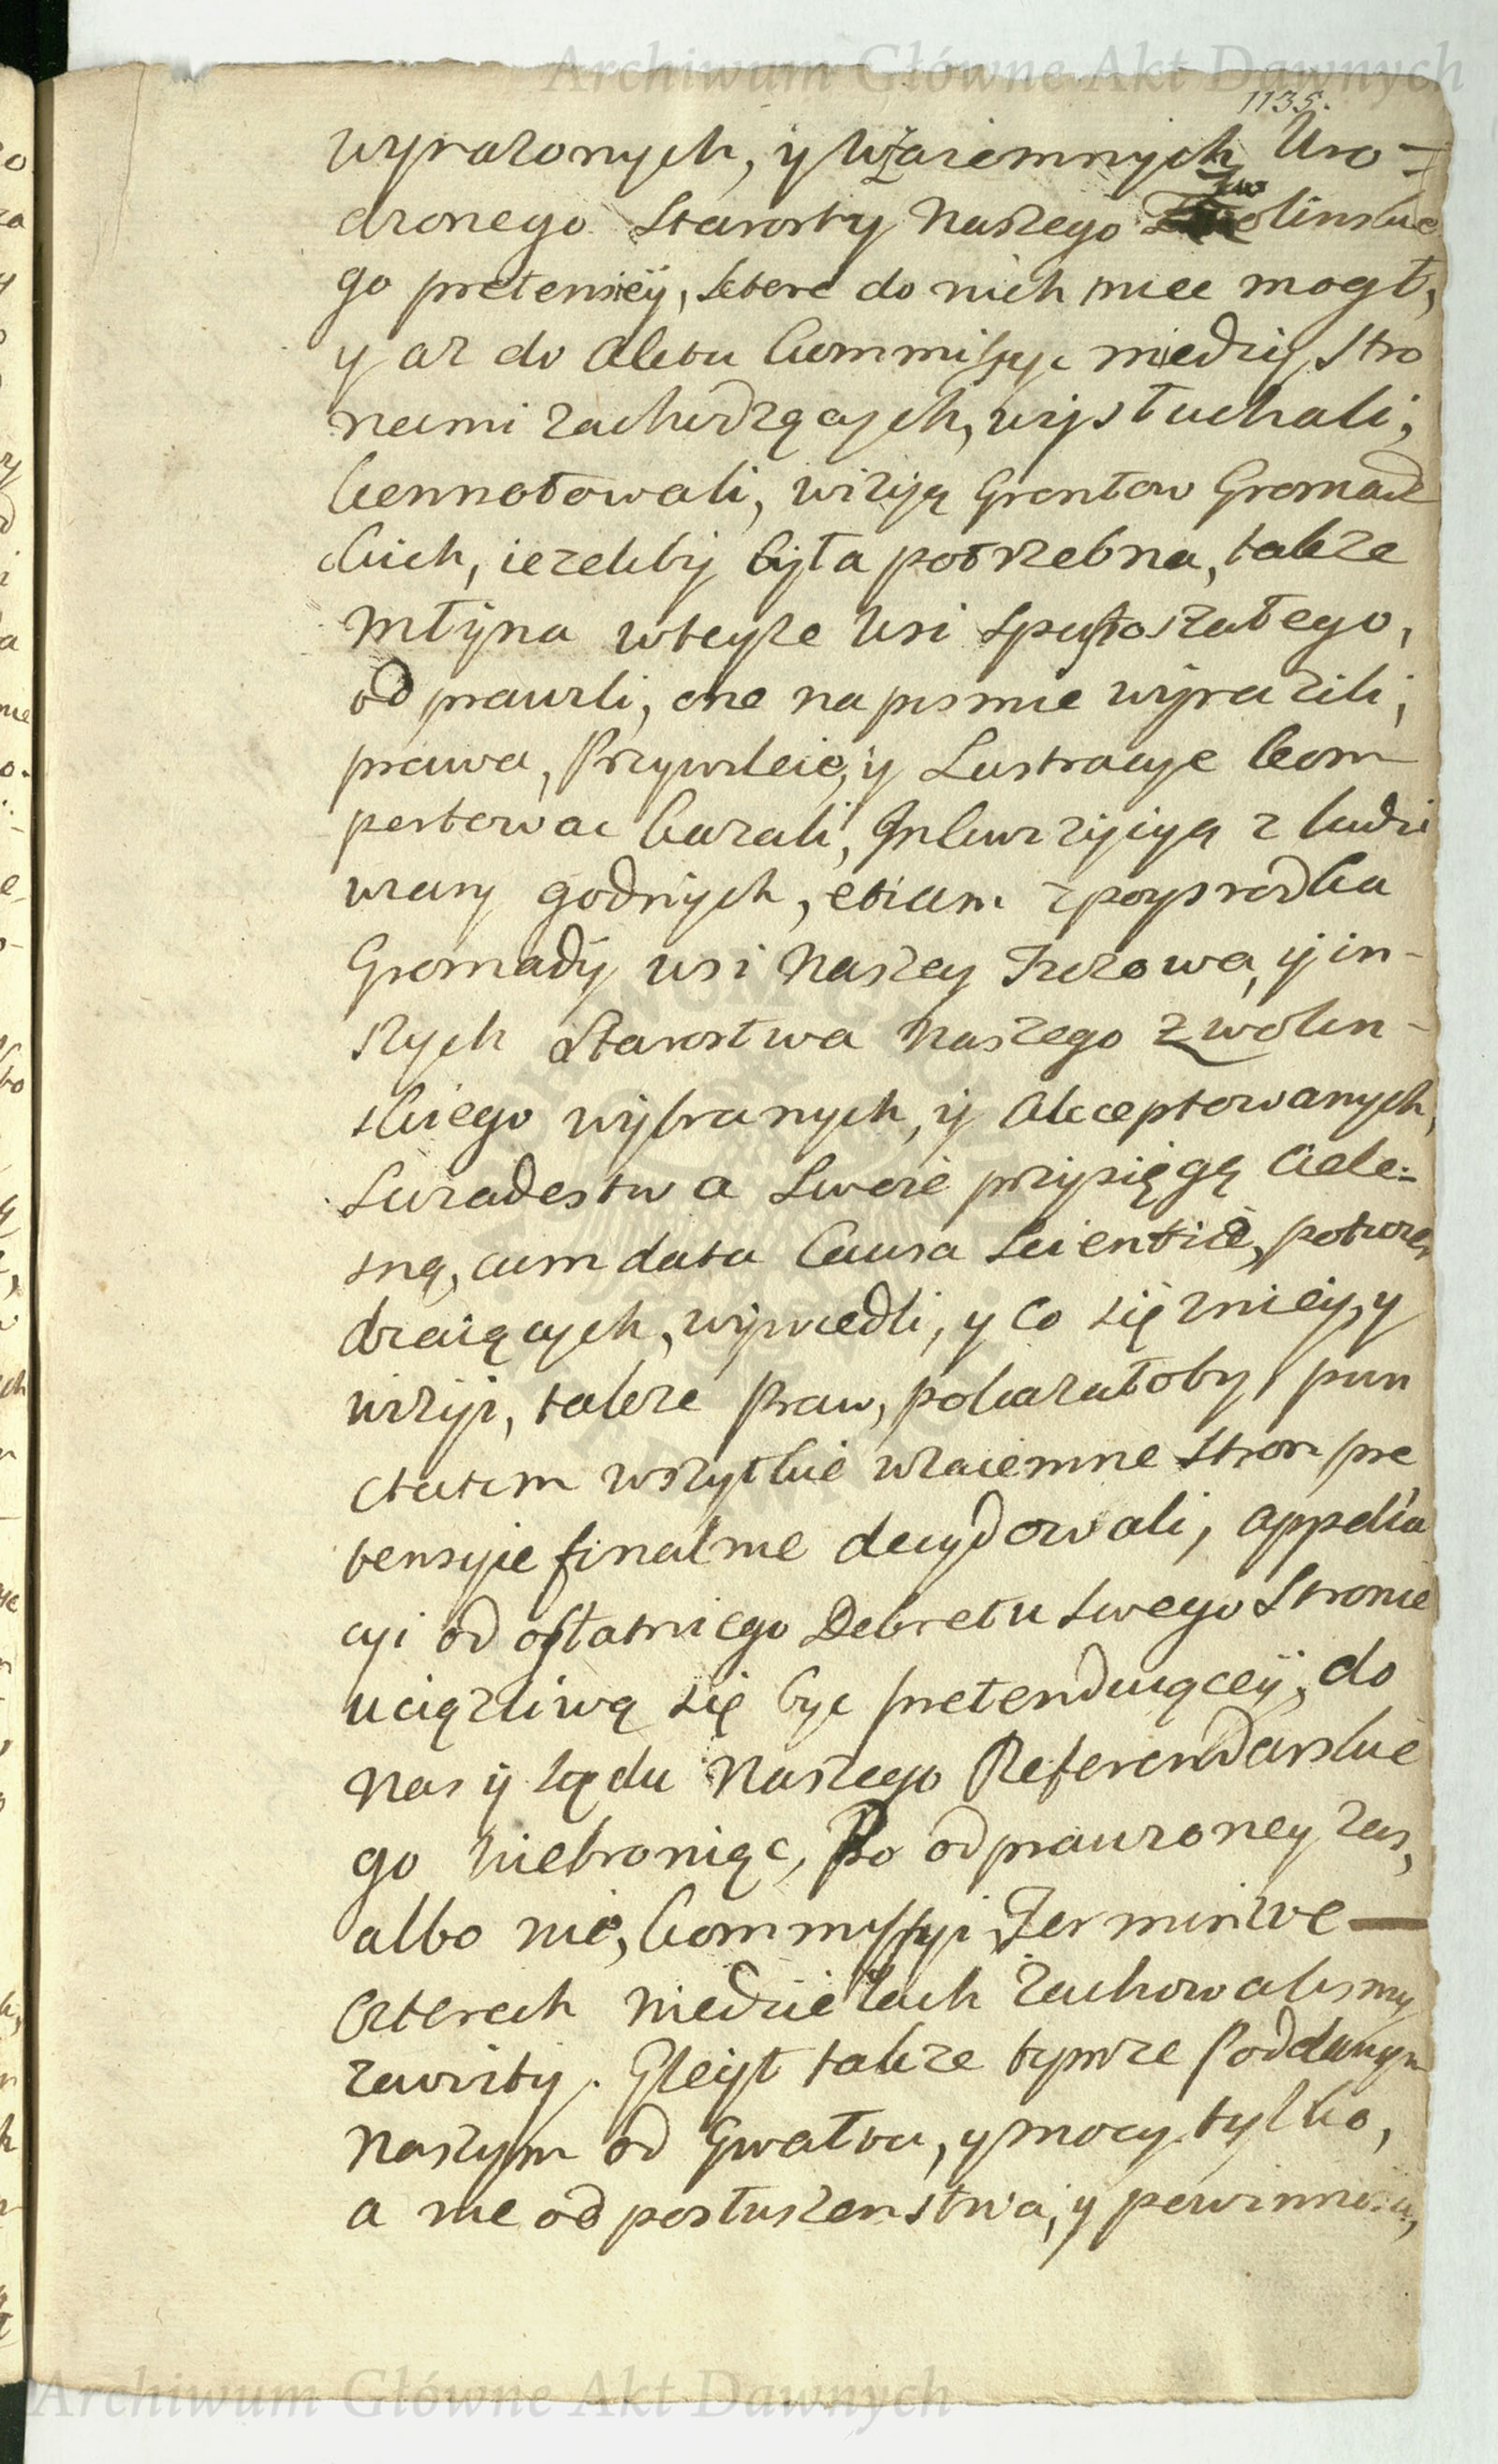 Archiwum Główne Akt Dawnych
1135.
wyrazonych, y Wzaiemnych Uro-
dzonego Starosty Naszego Zwolinskie
go pretensiÿ, ktore do nich miec mogł,
y az do Aktu Kommissyi miedzy Stro
nami zachodzących, wysłuchali,
konnotowali, wizyą Grontow Gromadz
kich, iezeliby była potrzebna, takze
Młyna wteyze Wsi Spustoszałego,
odprawili, one na pismie wyrazili,
prawa, Przywileie, y Lustracye kom
portowac kazali, Inkwizycyą z ludzi
wiary godnych, etiam zposrodka
Gromady wsi Naszey Jczowa, y in-
szych Starostwa Naszego Zwolin-
skiego wybranych, y Akceptowanych,
Swiadectwa Swoie przysięgą Ciele-
sną, cum data Causa Scientiæ, potwier
dzaiących, wywiedli, y co się zniey, y
wizyi, takze Praw, pokazałoby, pun
ctatim wszytkie wzaiemne Stron pre
tensyie finalnie decydowali, appella
cyi od ostatniego Dekretu Swego Stronie
uciązliwą się byc pretenduiącey, do
Nas y Sądu Naszego Referendarskie
go niebroniąc, Po odprawioney zas,
albo nie, Kommissyi, Termin we —
czterech Niedzielach Zachowalismy
zawity. Gleyt takze tymze Poddanym
Naszym od Gwałtu, y mocy tylko,
a nie od posłuszenstwa, y powinnosci,
Archiwum Główne Akt Dawnych